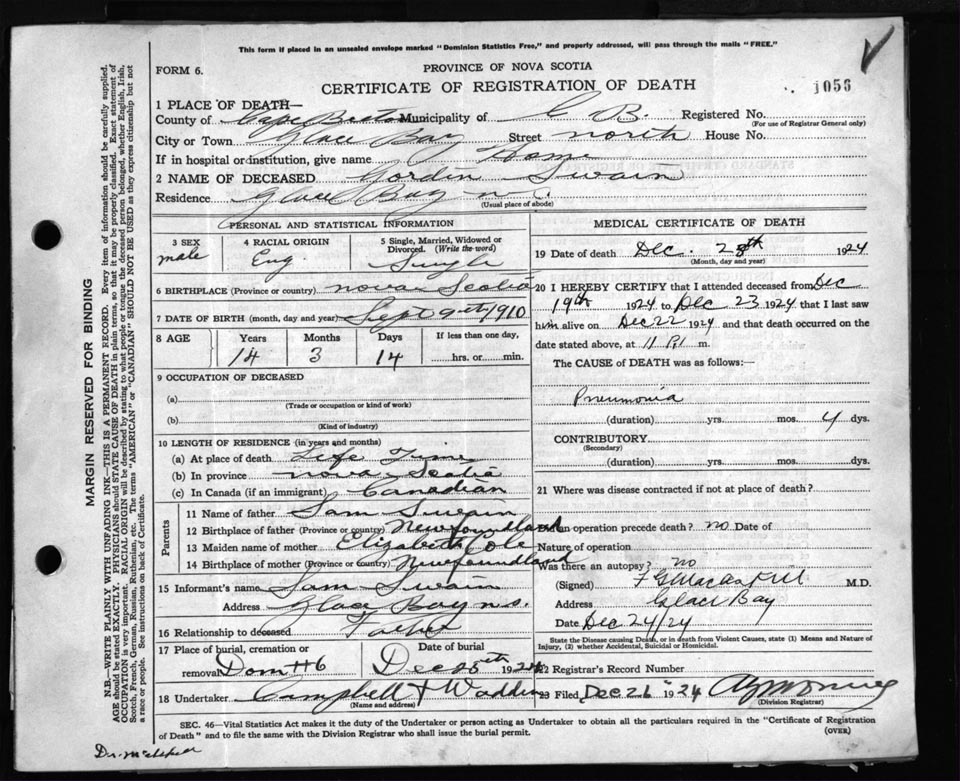 This form if placed in an unsealed envelope marked "Dominion Statistics Free," and properly addressed, will pass through the mails "FREE."
FORM 6.
PROVINCE OF NOVA SCOTIA
CERTIFICATE OF REGISTRATION OF DEATH
1056
1 PLACE OF DEATH—
County of Cape Breton Municipality of C B. Registered No.
(For use of Registrar General only)
City or Town Glace Bay Street north House No.
If in hospital or institution, give name Home
2 NAME OF DECEASED Gordin Swain
Residence Glace Bay
(Usual place of abode)
PERSONAL AND STATISTICAL INFORMATION
3 SEX male
4 RACIAL ORIGIN Eng
5 Single, Married, Widowed or Divorced. (Write the word) Single
6 BIRTHPLACE (Province or country) nova Scotia
7 DATE OF BIRTH (month, day and year) Sept 9th 1910
8 AGE Years Months Days If less than one day,
14 3 14 hrs. or min.
9 OCCUPATION OF DECEASED
(a)
(Trade or occupation or kind of work)
(b)
(Kind of industry)
10 LENGTH OF RESIDENCE (in years and months)
(a) At place of death Life Time
(b) In province nova Scotia
(c) In Canada (if an immigrant) Canadian
Parents
11 Name of father Sam Swain
12 Birthplace of father (Province or country) Newfoundland
13 Maiden name of mother Elizabeth Cole
14 Birthplace of mother (Province or country) Newfoundland
15 Informant's name Sam Swain
Address Glace Bay n.s.
16 Relationship to deceased Father
17 Place of burial, cremation or removal Dom #6
Date of burial Dec 25th 1924
18 Undertaker Campbell & Wadden
(Name and address)
MEDICAL CERTIFICATE OF DEATH
19 Date of death Dec. 1924
(Month, day and year)
20 I HEREBY CERTIFY that I attended deceased from Dec
19th 1924 to Dec 23 1924 that I last saw
him alive on Dec 22 1924 and that death occurred on the
date stated above, at 11 P.1 m.
The CAUSE of DEATH was as follows:—
Pneumonia
(duration) yrs. mos. 4 dys.
CONTRIBUTORY
(Secondary)
(duration) yrs. mos. dys.
21 Where was disease contracted if not at place of death?
an operation precede death? no Date of
Nature of operation
Was there an autopsy? No
(Signed) M.D.
Address Glace Bay
Date Dec 24/24
State the Disease causing Death, or in death from Violent Causes, state (1) Means and Nature of Injury, (2) whether Accidental, Suicidal or Homicidal.
22 Registrar's Record Number
23 Filed Dec 26 1924
(Division Registrar)
SEC. 46—Vital Statistics Act makes it the duty of the Undertaker or person acting as Undertaker to obtain all the particulars required in the "Certificate of Registration
of Death" and to file the same with the Division Registrar who shall issue the burial permit.
(OVER)
MARGIN RESERVED FOR BINDING
N.B.—WRITE PLAINLY WITH UNFADING INK—THIS IS A PERMANENT RECORD. Every item of information should be carefully supplied.
AGE should be stated EXACTLY. PHYSICIANS should STATE CAUSE OF DEATH in plain terms, so that it may be properly classified. Exact statement of
OCCUPATION is very important. RACIAL ORIGIN will be described by stating to what people or tongue the deceased person belonged, whether English, Irish,
Scotch, French, German, Russian, Ruthenian, etc. The terms "AMERICAN" or "CANADIAN" SHOULD NOT BE USED as they express citizenship but not
a race or people. See instructions on back of Certificate.